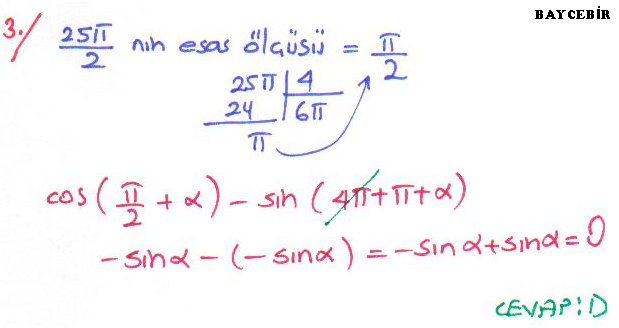 BAYCEBİR
3./ 25π/2 nin esas ölçüsü = π/2
25π | 4
24 | 6π
π
cos(π/2 + α) - sin (4π+π+α)
-sinα - (-sinα) = -sinα+sinα = 0
CEVAP:D